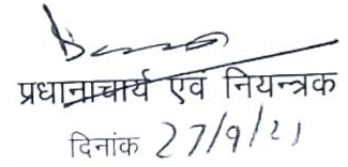 प्रधानाचार्य एवं नियन्त्रक
दिनांक 27/9/21